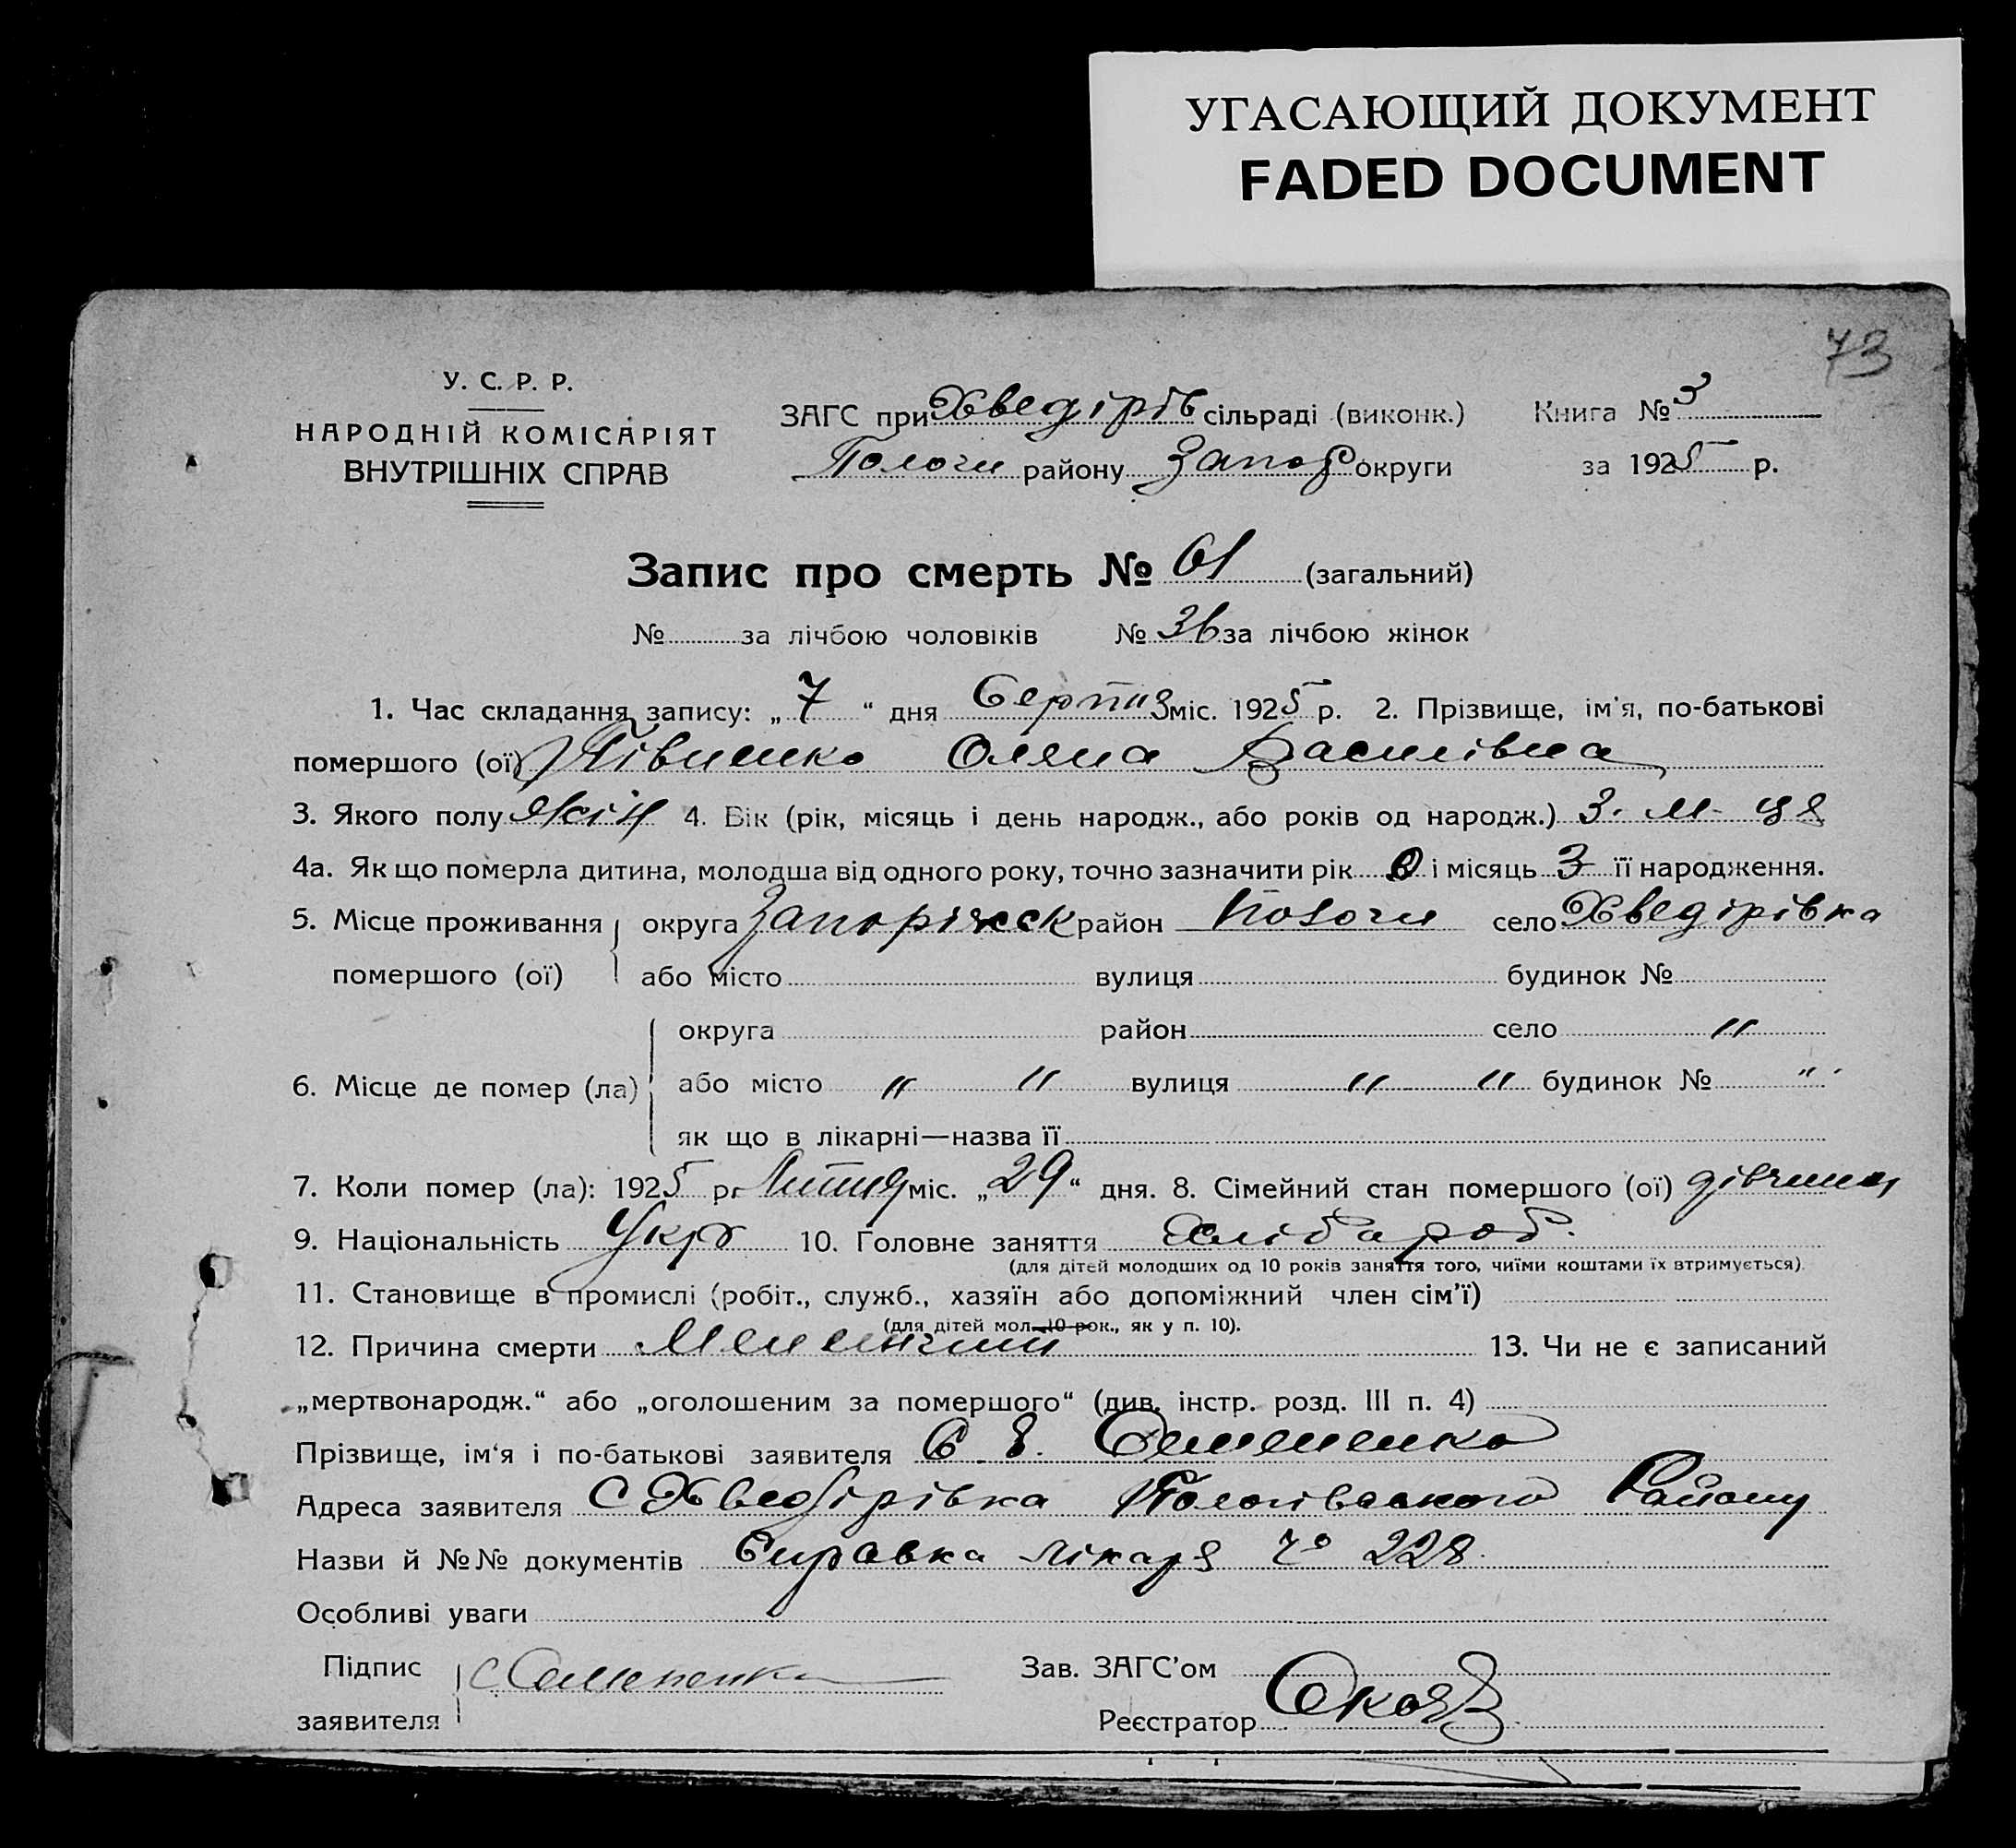 УГАСАЮЩИЙ ДОКУМЕНТ
FADED DOCUMENT
73
У. С. Р. Р.
НАРОДНІЙ КОМІСАРІЯТ
ВНУТРІШНІХ СПРАВ
ЗАГС при Хведірів сільраді (виконк.) Книга № 3
Пологи району Запор округи за 1925 р.
Запис про смерть № 61 (загальний)
№ за лічбою чоловіків № 36 за лічбою жінок
1. Час складання запису: „7“ дня Серпня міс. 1925 р. 2. Прізвище, ім'я, по-батькові
помершого (ої) Півненко Оляна Василівна
3. Якого полу жін 4. Вік (рік, місяць і день народж., або років од народж.) 3. м-ця
4а. Як що померла дитина, молодша від одного року, точно зазначити рік 0 і місяць 3 її народження.
5. Місце проживання округа Запоріжск район Пологи село Хведірівка
помершого (ої) або місто вулиця будинок №
округа район село "
6. Місце де помер (ла) або місто " " вулиця " " будинок № "
як що в лікарні—назва її
7. Коли помер (ла): 1925 р. Липня міс. „29“ дня. 8. Сімейний стан помершого (ої) дівчина
9. Національність Укр 10. Головне заняття Хлібароб.
(для дітей молодших од 10 років заняття того, чиїми коштами їх втримується).
11. Становище в промислі (робіт., служб., хазяїн або допоміжний член сім'ї)
(для дітей мол. 10 рок., як у п. 10).
12. Причина смерти Мениншит 13. Чи не є записаний
„мертвонародж.“ або „оголошеним за помершого“ (див. інстр. розд. III п. 4)
Прізвище, ім'я і по-батькові заявителя С. Семененко
Адреса заявителя С Хведірівка Пологівського Району
Назви й №№ документів Справка лікаря № 228
Особливі уваги
Підпис С Семененко Зав. ЗАГС'ом
заявителя Реєстратор